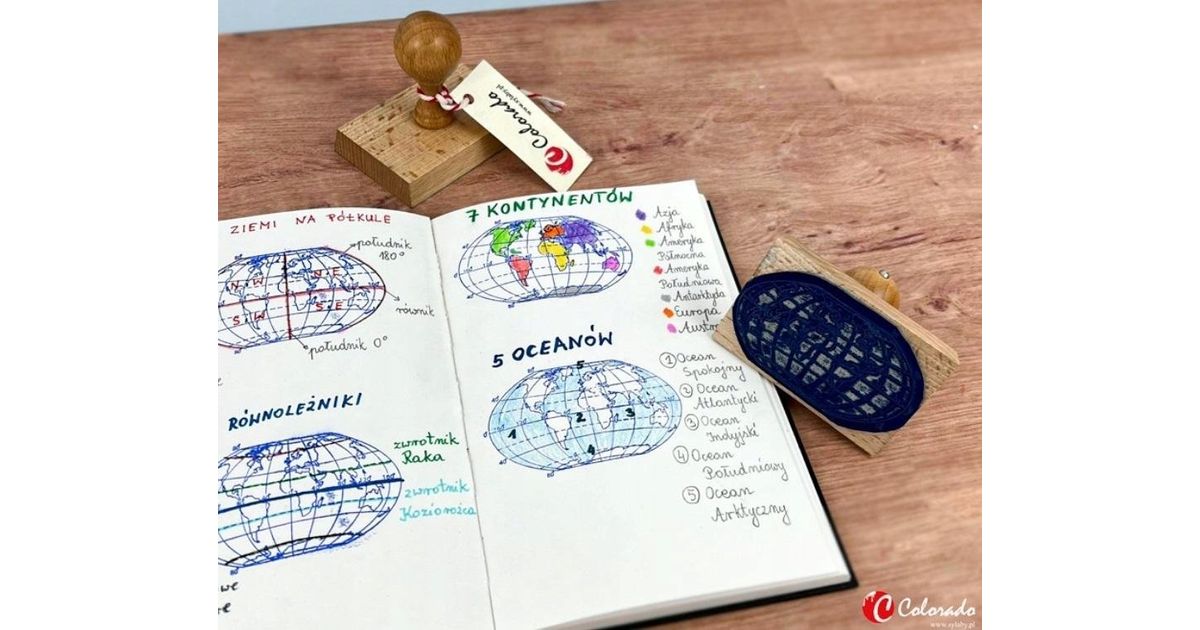 Colorado
www.sylaby.pl
ZIEMI NA PÓŁKULE
południk
180°
N.W
N.E
S.W
S.E
równik
południk 0°
RÓWNOLEŻNIKI
zwrotnik
Raka
zwrotnik
Koziorożca
7 KONTYNENTÓW
Azja
Afryka
Ameryka
Północna
Ameryka
Południowa
Antarktyda
Europa
Austr
5 OCEANÓW
5
1
2
3
4
① Ocean
Spokojny
② Ocean
Atlantycki
③ Ocean
Indyjski
④ Ocean
Południowy
⑤ Ocean
Arktyczny
Colorado
www.sylaby.pl